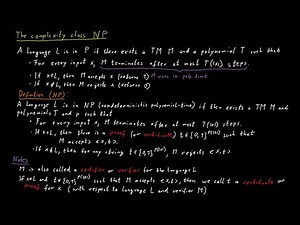 The complexity class NP
A language L is in P if there exists a TM M and a polynomial T such that
• For every input x, M terminates after at most T(|x|) steps.
• If x∈L, then M accepts x (returns 1) M runs in poly time
• If x∉L, then M rejects x (returns 0)
Definition (NP):
A language L is in NP (nondeterministic polynomial-time) if there exists a TM M and
polynomials T and p such that
• For every input x, M terminates after at most T(|x|) steps.
• If x∈L, then there is a proof (or certificate) t∈{0,1}^p(|x|) such that
M accepts <x,t>.
• If x∉L, then for any string t∈{0,1}^p(|x|), M rejects <x,t>.
Notes
M is also called a verifier for the language L
If x∈L and t∈{0,1}^p(|x|) such that M accepts <x,t>, then we call t a certificate or
proof for x (with respect to language L and verifier M)